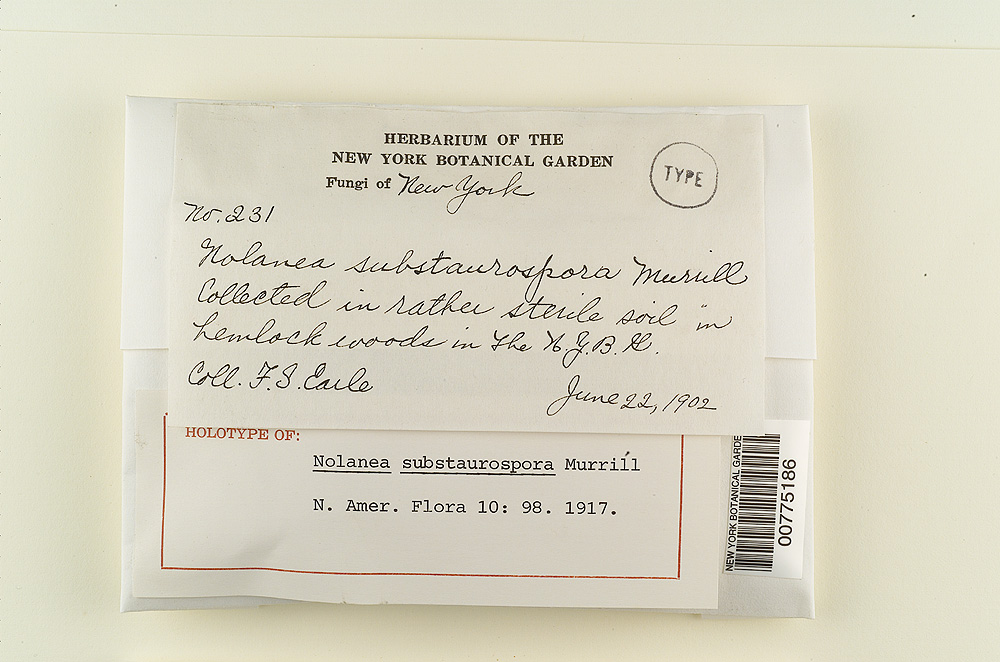 HERBARIUM OF THE
NEW YORK BOTANICAL GARDEN
Fungi of New York
TYPE
No. 231
Nolanea substaurospora Murrill
Collected in rather sterile soil in
hemlock woods in the N.Y.B.G.
Coll. F.S. Earle
June 22, 1902
HOLOTYPE OF:
Nolanea substaurospora Murrill
N. Amer. Flora 10: 98. 1917.
NEW YORK BOTANICAL GARDE
00775186